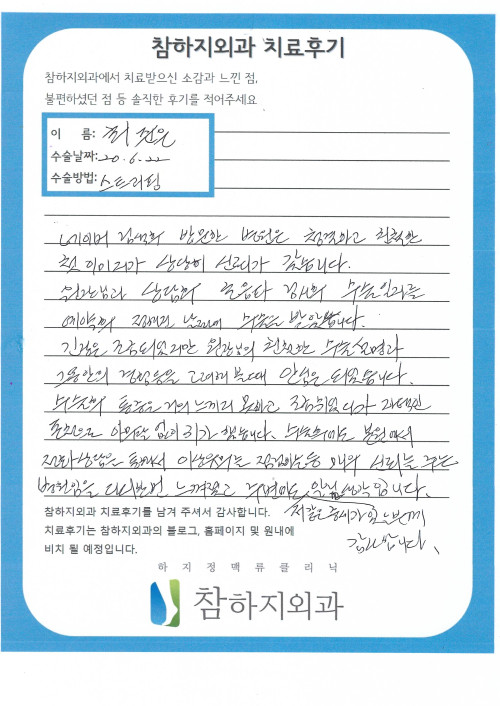 참하지외과 치료후기
참하지외과에서 치료받으신 소감과 느낀 점,
불편하셨던 점 등 솔직한 후기를 적어주세요
이 름:
수술날짜: 20.6.22
수술방법: 스트리핑
네이버 검색후 방문한 병원은 청결하고 친절한
첫 이미지가 상당히 신뢰가 갔습니다.
원장님과 상담후 들은다 검사후 수술일자를
예약후 정해진 날짜에 수술을 받았습니다.
긴장은 조금되었지만 원장님의 친절한 수술설명과
그동안의 경험등을 고려해볼때 안심은 되었습니다.
수술후 통증은 거의 느끼지 못하고 조금쉬었다가
아무탈 없이 귀가 했습니다. 수술후에도 병원에서
전화상담을 통해서 이상유무는 점검하는등 매우 신뢰를 주는
병원임을 다시한번 느껴졌고 주변에도 생각입니다.
저같은 증세가 있는분께
감사합니다.
참하지외과 치료후기를 남겨 주셔서 감사합니다.
치료후기는 참하지외과의 블로그, 홈페이지 및 원내에
비치 될 예정입니다.
하지정맥류클리닉
참하지외과